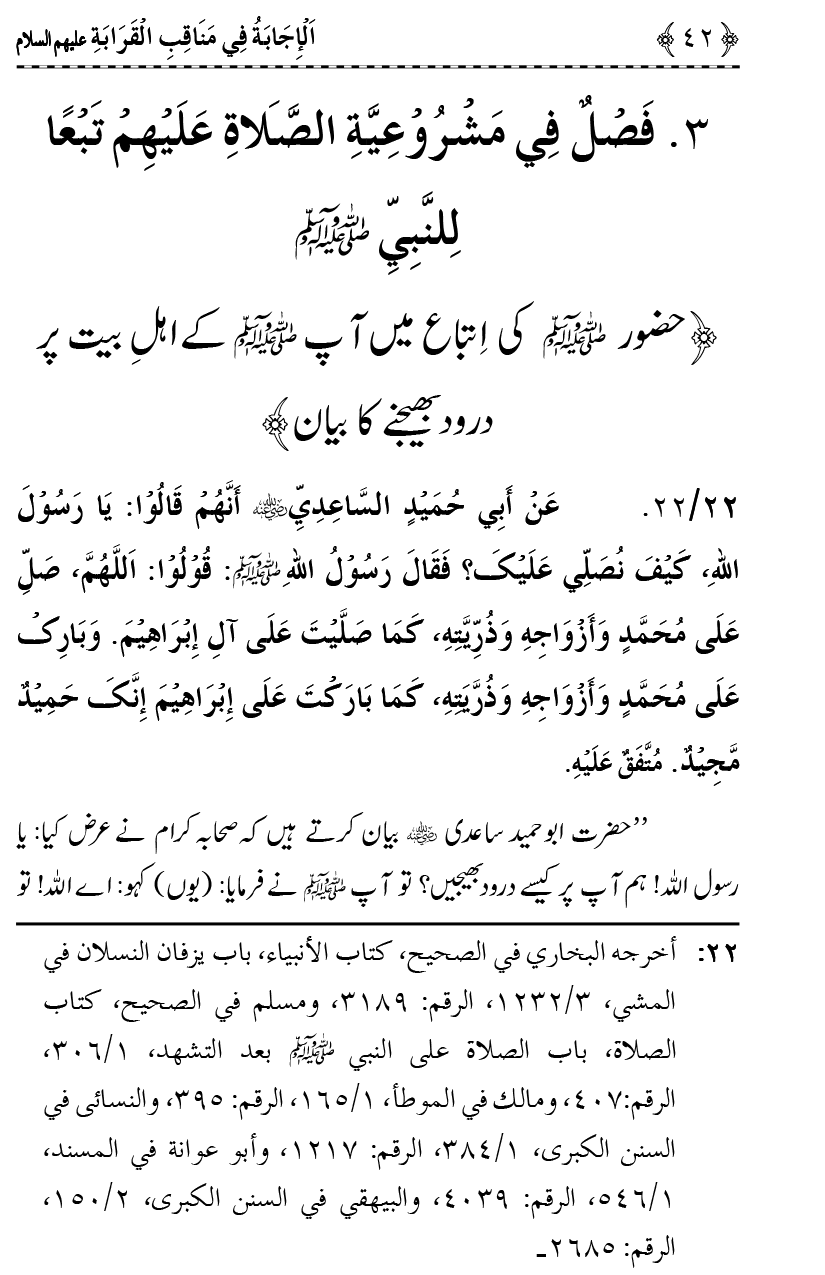 ﴿٤٢﴾ اَلْإِجَابَةُ فِي مَنَاقِبِ الْقَرَابَةِ علیہم السلام
٣. فَصْلٌ فِي مَشْرُوْعِيَّةِ الصَّلَاةِ عَلَيْهِمْ تَبْعًا
لِلنَّبِيِّ ﷺ
﴿حضور ﷺ کی اِتباع میں آپ ﷺ کے اہلِ بیت پر
درود بھیجنے کا بیان﴾
٢٢/٢٢. عَنْ أَبِي حُمَيْدٍ السَّاعِدِيِّ رضی اللہ عنہ أَنَّهُمْ قَالُوْا: يَا رَسُوْلَ
اللهِ، كَيْفَ نُصَلِّي عَلَيْکَ؟ فَقَالَ رَسُوْلُ اللهِ ﷺ: قُوْلُوْا: اَللَّهُمَّ، صَلِّ
عَلَى مُحَمَّدٍ وَأَزْوَاجِهِ وَذُرِّيَّتِهِ، كَمَا صَلَّيْتَ عَلَى آلِ إِبْرَاهِيْمَ. وَبَارِکْ
عَلَى مُحَمَّدٍ وَأَزْوَاجِهِ وَذُرِّيَّتِهِ، كَمَا بَارَكْتَ عَلَى إِبْرَاهِيْمَ إِنَّکَ حَمِيْدٌ
مَّجِيْدٌ. مُتَّفَقٌ عَلَيْهِ.
’’حضرت ابو حمید ساعدی رضی اللہ عنہ بیان کرتے ہیں کہ صحابہ کرام نے عرض کیا: یا
رسول اللہ! ہم آپ پر کیسے درود بھیجیں؟ تو آپ ﷺ نے فرمایا: (یوں) کہو: اے اللہ! تو
٢٢: أخرجه البخاري في الصحيح، كتاب الأنبياء، باب يزفان النسلان في
المشي، ١٢٣٢/٣، الرقم: ٣١٨٩، ومسلم في الصحيح، كتاب
الصلاة، باب الصلاة على النبي ﷺ بعد التشهد، ٣٠٦/١،
الرقم:٤٠٧، ومالك في الموطأ، ١٦٥/١، الرقم: ٣٩٥، والنسائى في
السنن الكبرى، ٣٨٤/١، الرقم: ١٢١٧، وأبو عوانة في المسند،
٥٤٦/١، الرقم: ٤٠٣٩، والبيهقي في السنن الكبرى، ١٥٠/٢،
الرقم: ٢٦٨٥۔